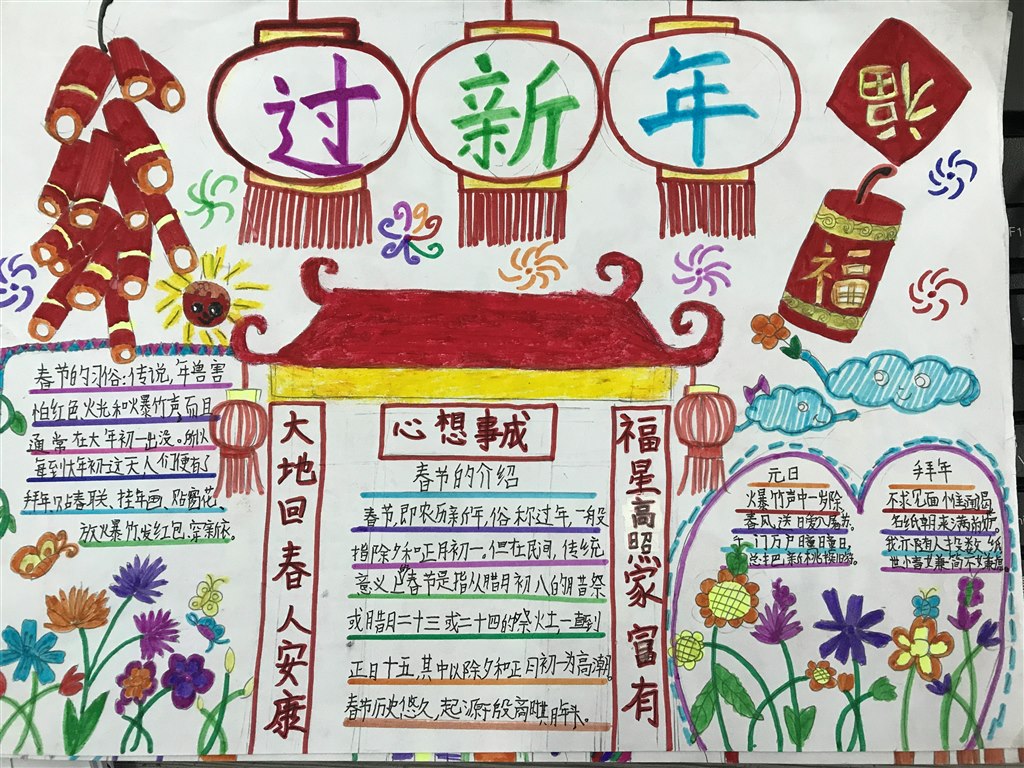 过新年
福
福
春节的习俗:传说,年兽害
怕红色、火光和爆竹声,而且
通常在大年初一出没。所以
每到大年初一这天人们便有了
拜年、贴春联、挂年画、贴窗花、
放爆竹发红包,穿新衣。
大地回春人安康
心想事成
福星高照家富有
春节的介绍
春节,即农历新年,俗称过年,一般
指除夕和正月初一。但在民间,传统
意义上春节是指从腊月初八的腊祭
或腊月二十三或二十四的祭灶,一直到
正月十五,其中以除夕和正月初一为高潮
春节历史悠久,起源于殷商时期年头
元日
爆竹声中一岁除
春风送暖入屠苏。
千门万户曈曈日,
总把新桃换旧符。
拜年
不求见面惟通谒
名纸朝来满敝庐。
我亦随人投数纸
世人嫌简不嫌虚